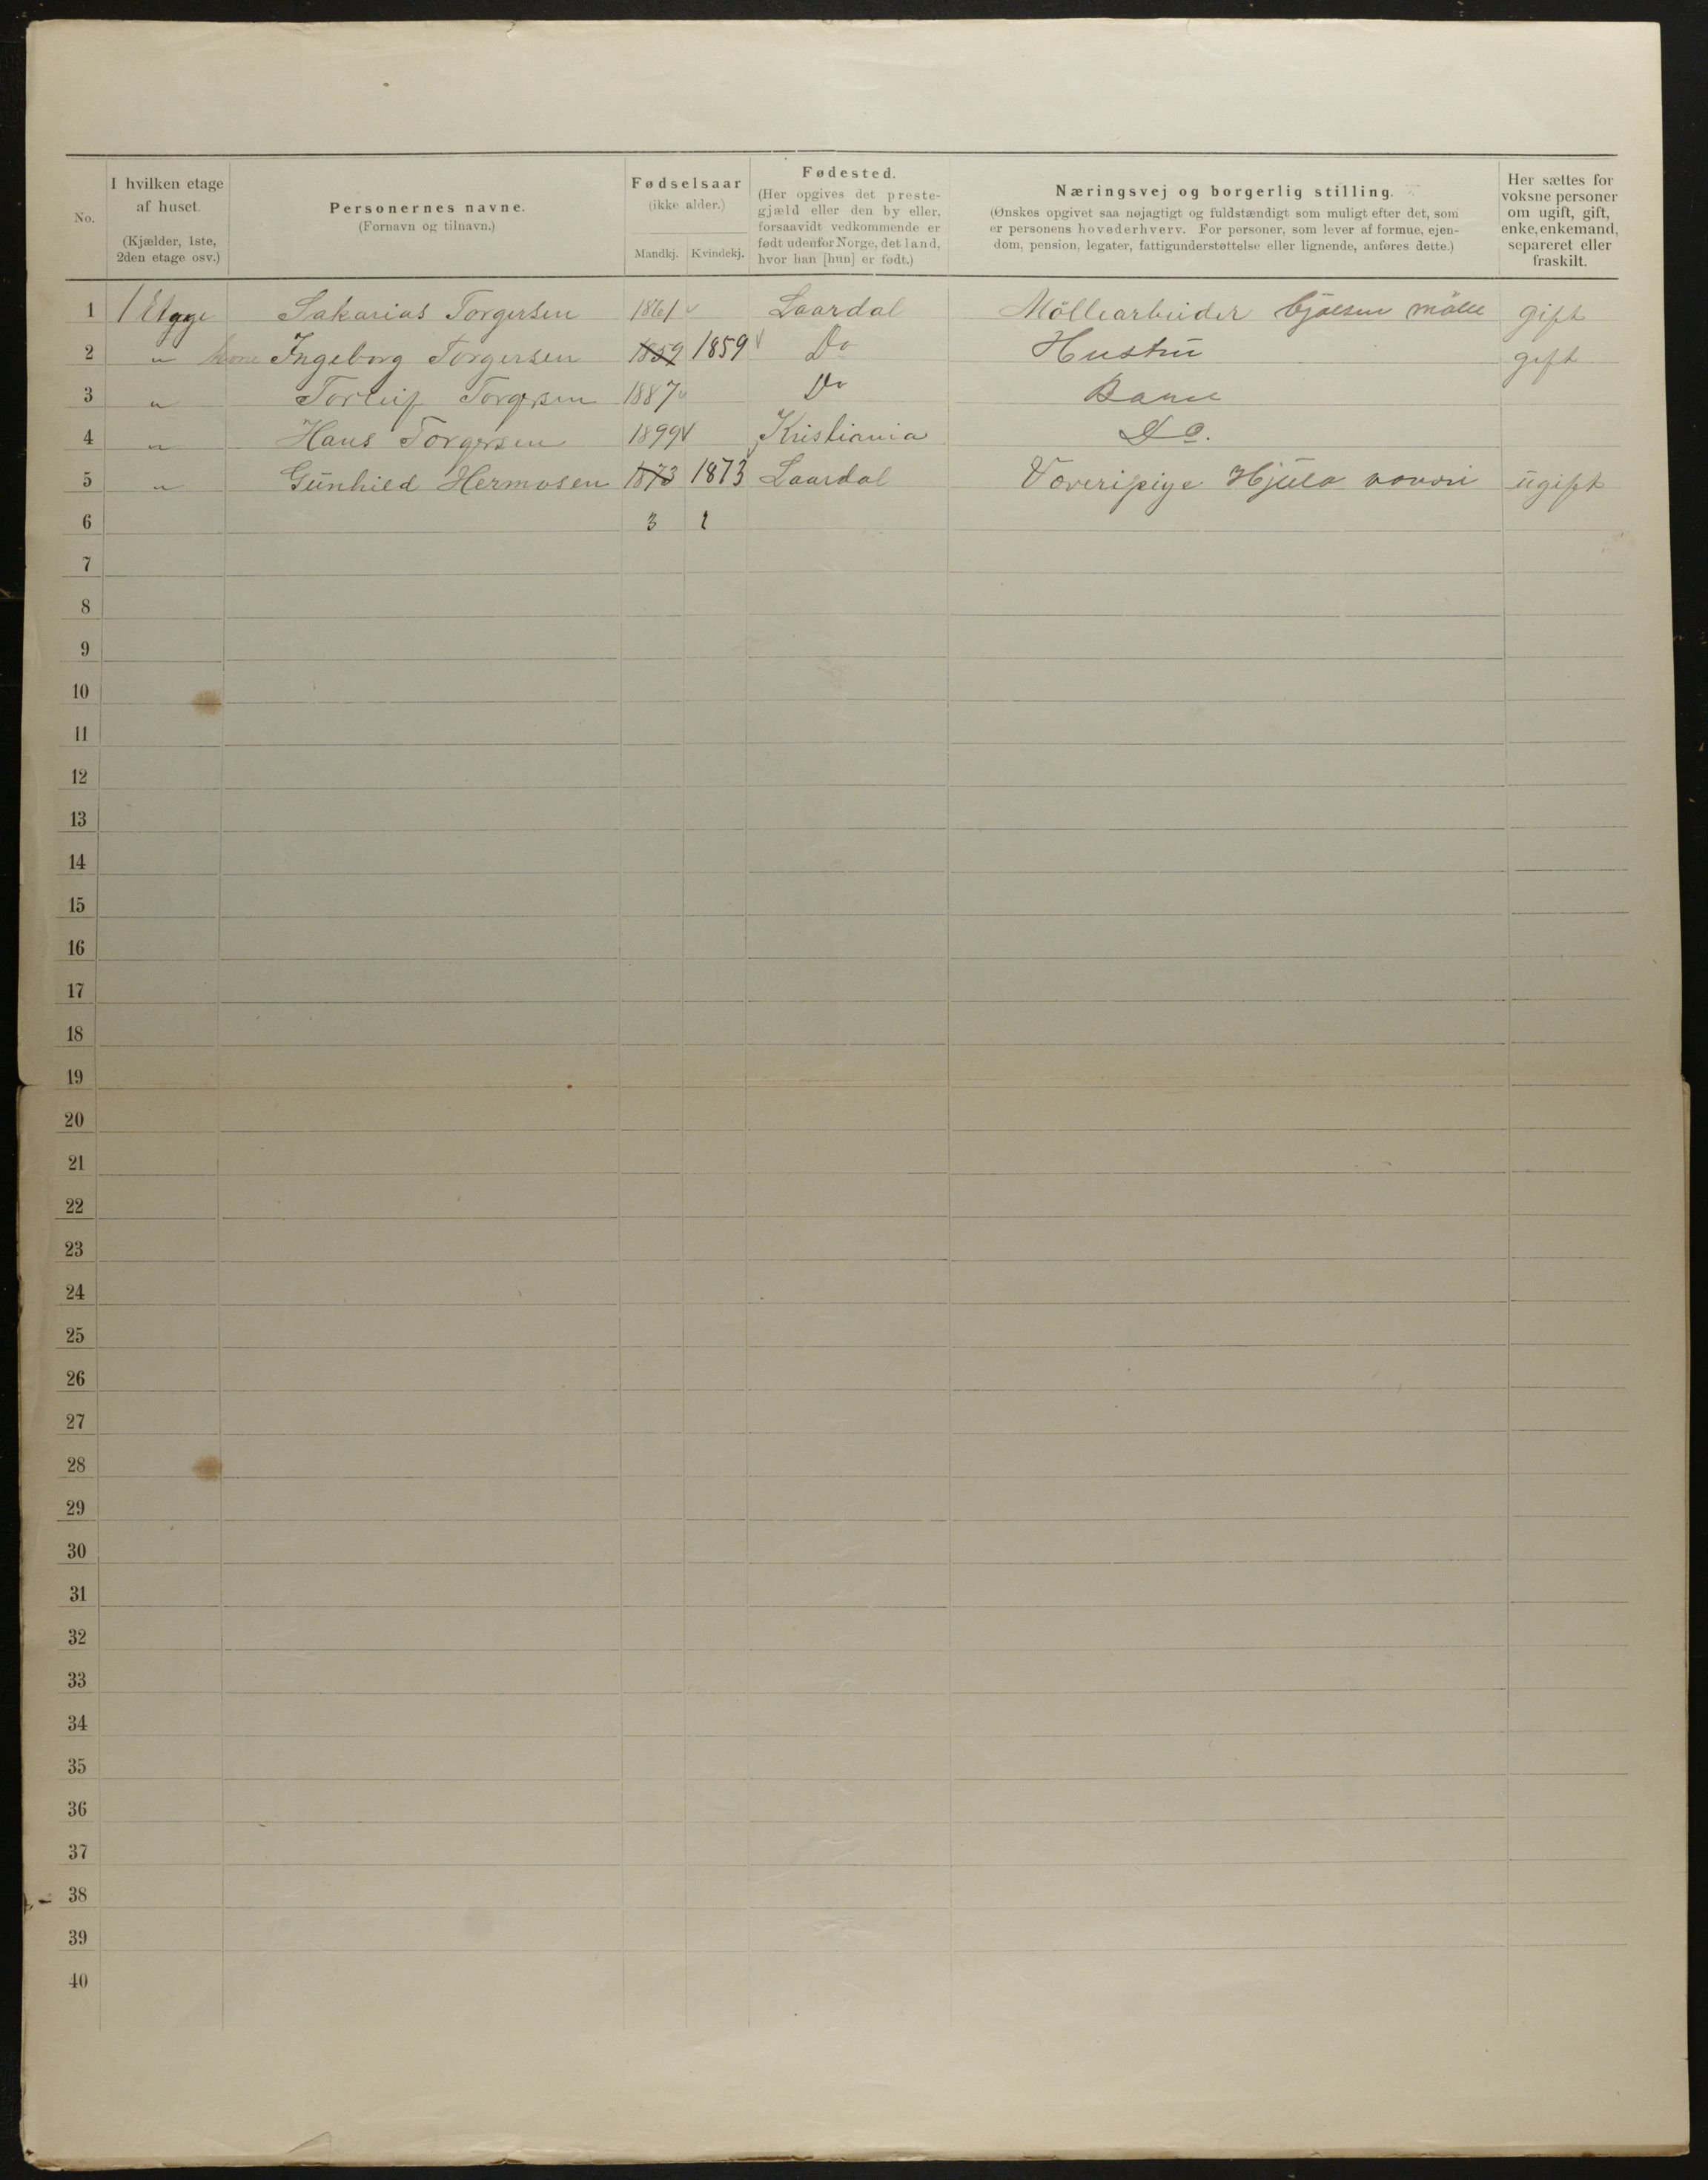 No.
I hvilken etage
af huset.
(Kjælder, 1ste,
2den etage osv.)
Personernes navne.
(Fornavn og tilnavn.)
Fødselsaar
(ikke alder.)
Mandkj. Kvindekj.
Fødested.
(Her opgives det preste-
gjæld eller den by eller,
forsaavidt vedkommende er
født udenfor Norge, det land,
hvor han [hun] er født.)
Næringsvej og borgerlig stilling.
(Ønskes opgivet saa nøjagtigt og fuldstændigt som muligt efter det, som
er personens hovederhverv. For personer, som lever af formue, ejen-
dom, pension, legater, fattigunderstøttelse eller lignende, anføres dette.)
Her sættes for
voksne personer
om ugift, gift,
enke, enkemand,
separeret eller
fraskilt.
1 1 Etage Sakarias Torgersen 1861 Laardal Möllearbeider bjølsen mölle gift
2 " kone Ingeborg Torgersen 1859 1859 Do Hustru gift
3 " Torleif Torgersen 1887 Do
4 " Hans Torgersen 1899 Kristiania Do.
5 " Gunhild Hermosen 1873 1873 Laardal Væveripige Hjula ugift
6 3 2
7
8
9
10
11
12
13
14
15
16
17
18
19
20
21
22
23
24
25
26
27
28
29
30
31
32
33
34
35
36
37
38
39
40